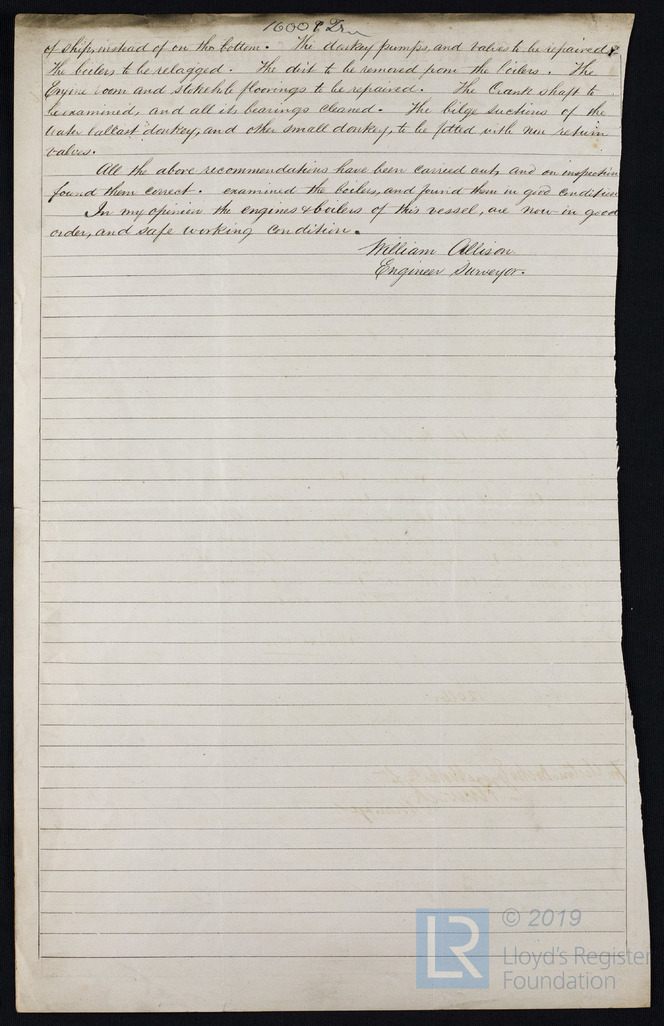 of ship, instead of on the bottom. The donkey pumps, and valves to be repaired &
the boilers to be relagged. The dirt to be removed from the boilers. The
Engine room and stokehole floorings to be repaired. The Crank shaft to
be examined, and all its bearings cleaned. The bilge suctions of the
water ballast donkey, and other small donkey, to be fitted with non return
valves.
All the above recommendations have been carried out, and on inspection
found them correct. examined the boilers, and found them in good condition
In my opinion the engines & boilers of this vessel, are now in good
order, and safe working condition.
William Allison
Engineer Surveyor.
LR
© 2019
Lloyd's Register
Foundation